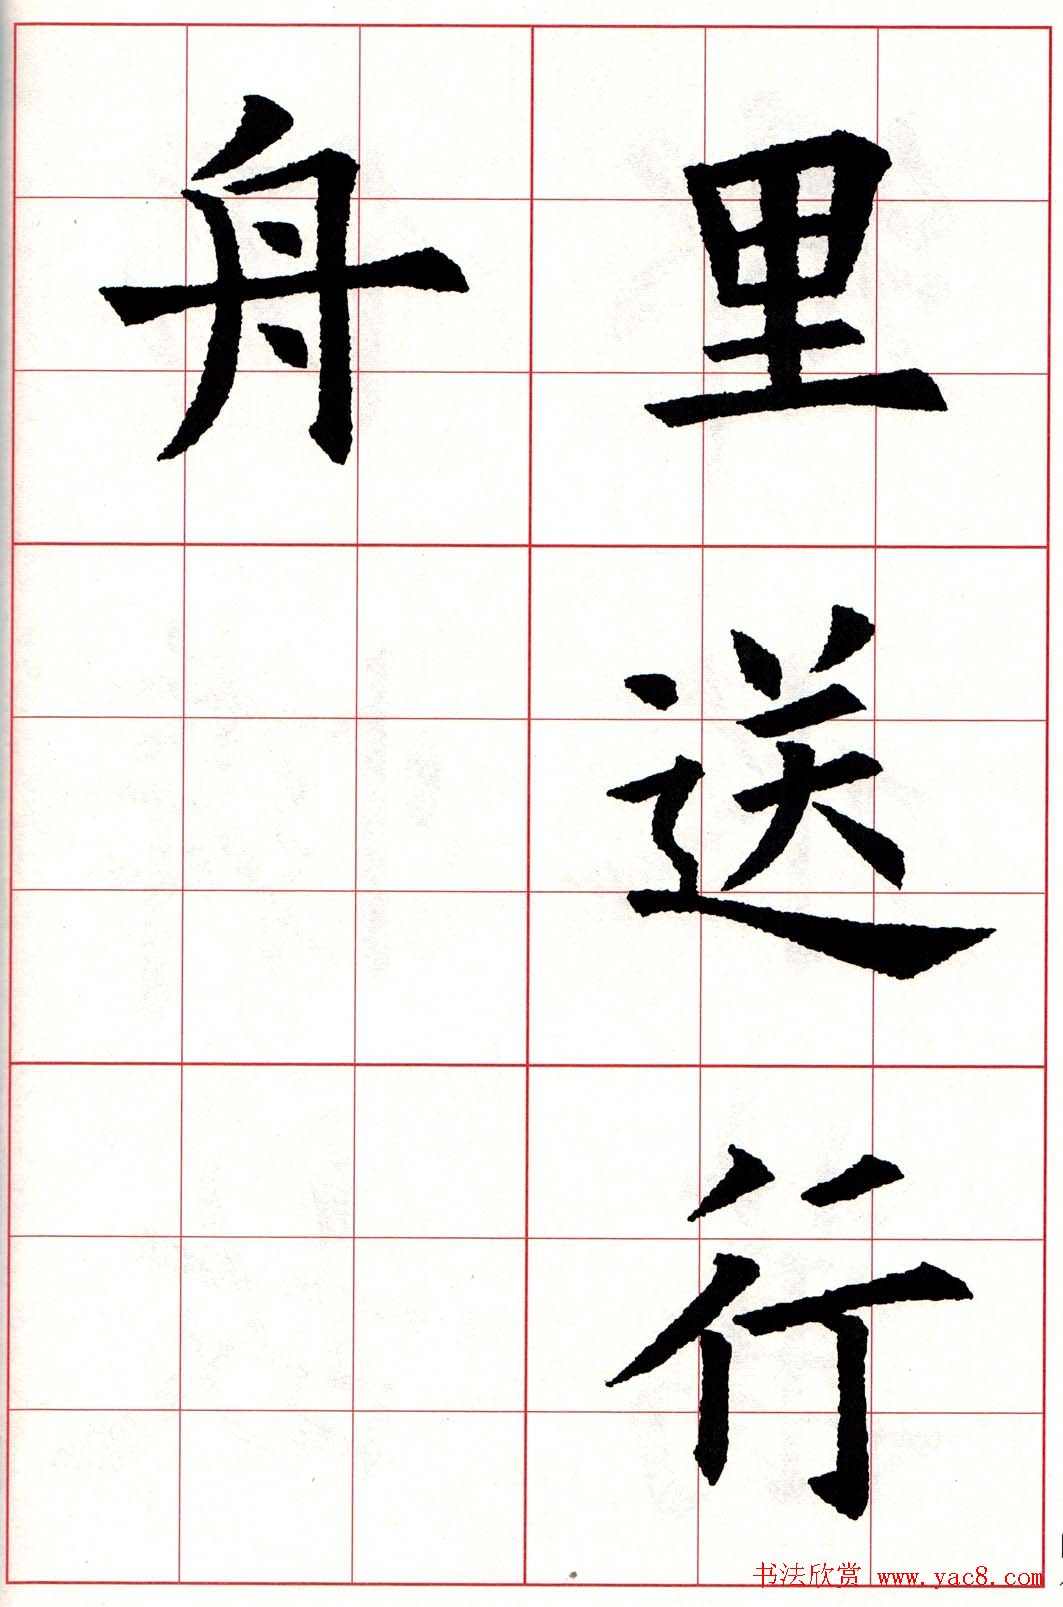 里送行
舟
书法欣赏 www.yac8.com